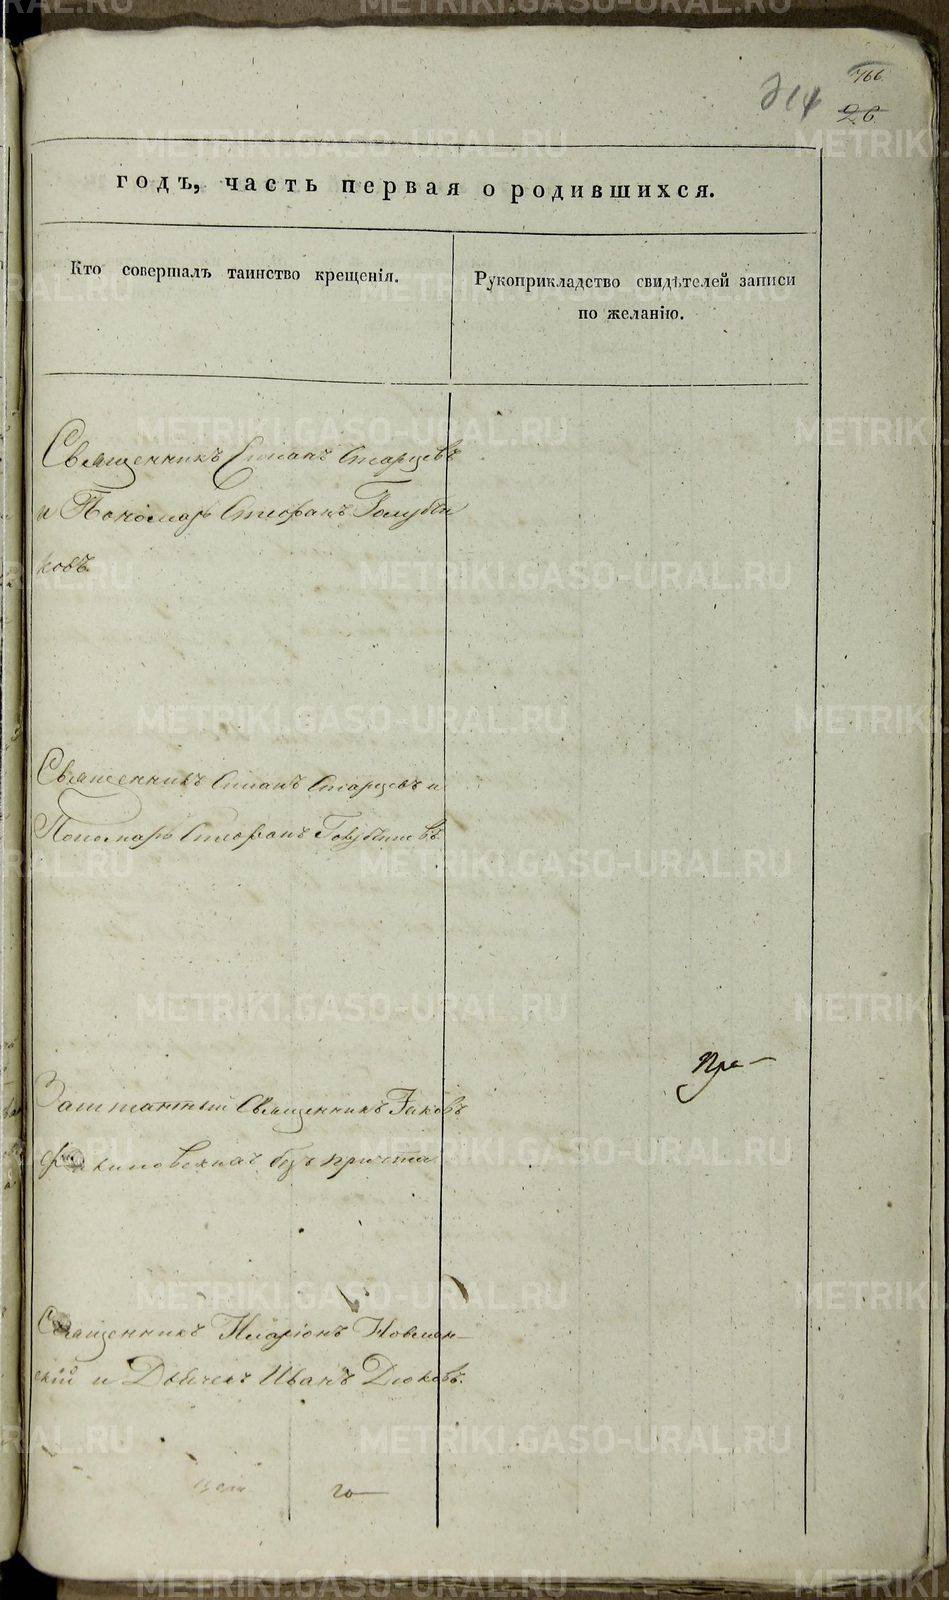 314
766
26
годъ, часть первая о родившихся.
Кто совершалъ таинство крещенія.
Рукоприкладство свидѣтелей записи
по желанію.
Священникъ Симонъ Старцевъ
и Пономарь Стефанъ Голубчи
ковъ.
Священникъ Симонъ Старцевъ и
Пономарь Стефанъ
Заштатный Священникъ Іаковъ
безъ причта
Священникъ Иларіонъ
скій и Дьячекъ Иванъ Дюковъ.
METRIKI.GASO-URAL.RU